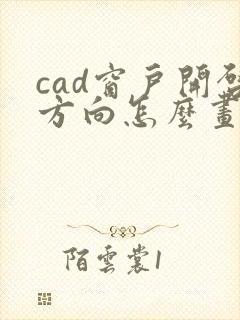 cad窗戶開啟
方向怎麼畫
陌雲裳1